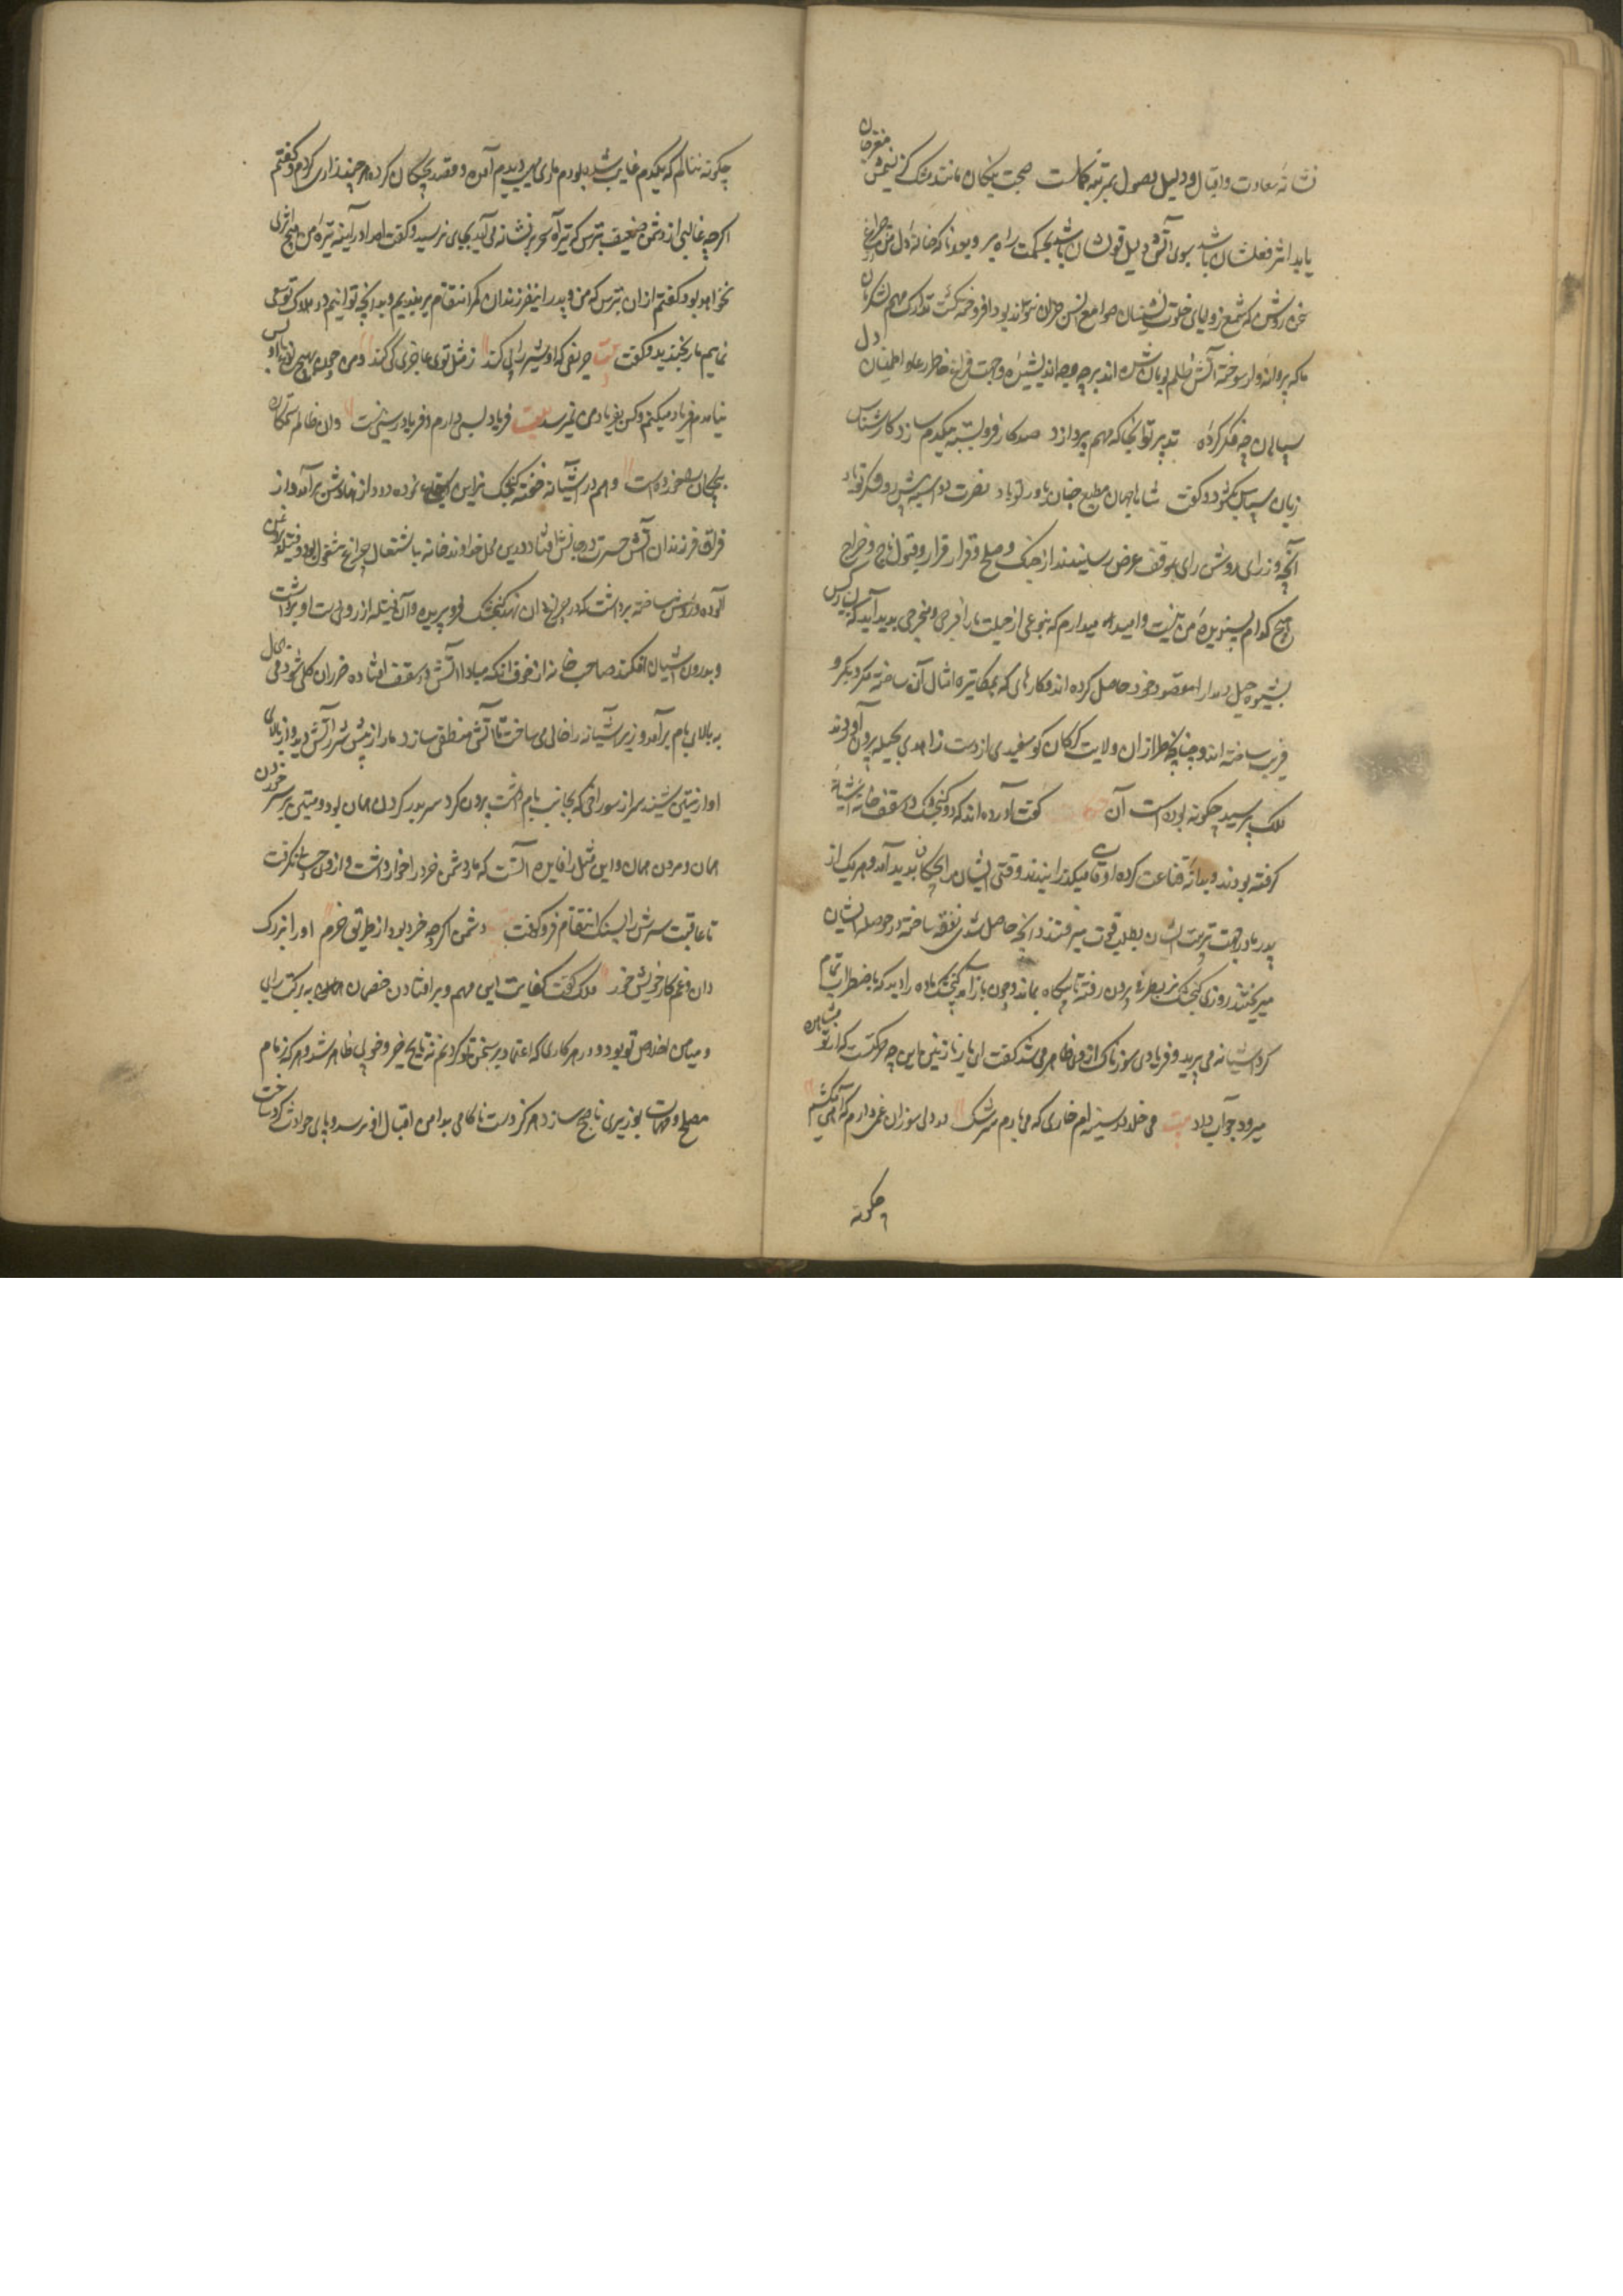 نشانه سعادت و اقبال و دلیل وصول بمرتبه کمالست صحبت نیکان مانند مشک کز نسیمش مغز جان
یابد اثر فعلشان باشد دلیل قولشان باشد بحکمت راه بر و بعد ازانکه خانه دل
سخن روشن که شمع زوایای خلوت نشینان صوامع انس تواند بود افروخته گشت تدارک مهم لشکر
ما که پروانه وار سوخته آتش ظلم بومان شده اند بر چه وجه اندیشیده و جهت فراغ خاطر رعایا و اطمینان دل
سپاهیان چه فکر کرده تدبیر تو آنجا که بمهم پردازد صد کار فرو بسته بیکدم سازد کارشناس
زبان سپاس بگشود و گفت شاها جهان مطیع جنان یاور تو باد نصرت
آنچه وزرای روشن رای بموقف عرض رسانیدند از جنگ و صلح و قرار و فرار و قبول باج و خراج
هیچ کدام پسندیده من نیست و امید میدارم که بنوعی از حیلت ما را فرجی و مخرجی پدید آید که بسیار کس
بشیوه حیل و مدارا مقصود خود حاصل کرده اند و کارهای که بمکابره امثال آن ساخته نگردد بمکر و
فریب ساخته اند و چنانچه طراران ولایت گرگان گوسفندی از دست زاهدی بحیله بیرون آوردند
ملک پرسید چگونه بوده است آن گفت آورده اند که دو گنجشک در سقف خانه آشیانه
گرفته بودند و بدانه قناعت کرده اوقات میگذرانیدند وقتی ایشان را بچگان پدید آمد و هر یک از
پدر و مادر جهت تربیت ایشان بطلب قوت میرفتند و آنچه حاصل شدی نفقه ساخته در حوصله ایشان
میریختند روزی گنجشک نر بطرفی بیرون رفته تا بیگاه بماند و چون باز آمد گنجشک ماده را دید که باضطراب تمام
گرد آشیانه می پرید و فریادی سوزناک از وی ظاهر می شد گفت ای یار نازنین این چه حرکتست که از تو مشاهده
میرود جواب داد بیت می خلد در سینه ام خاری که می بارم سرشک در دلی سوزان غمی دارم که آهی میکشم
چگونه
چگونه ننالم که یکدم غایب شده بودم ماری مهیب دیدم آمده و قصد بچگان کرده هر چند زاری کردم و گفتم
اگر چه غالبی از دشمن ضعیف بترس که تیر آه سحر بر نشانه می آید بجای نرسید و گفت آه ترا در آینه تیره من هیچ اثری
نخواهد بود گفتم ازان بترس که من و پدر این فرزندان کمر انتقام بر بندیم و بدانچه توانیم در هلاک تو سعی
نمایم مار بخندید و گفت بیت حریفی که او شیر را پی کند ز مثل توی عاجزی کی کند و من چون بهیچ نوع با او بس
نیامدم فریاد میکنم و کس بفریاد من نمیرسد بیت فریاد بسی دارم و فریاد رسی نیست وان ظالم ستمکار
بچگان بخورده است و هم در آشیانه خفته گنجشک نر این بشنود دود از نهادش برآمد و از
فراق فرزندان آتش حسرت در جانش افتاد و درین محل خداوند خانه باشتعال چراغ مشغول بود و فتیله
آلوده و روشن ساخته برداشت که در چراغدان نهد گنجشک فرو پریده و آن فتیله از روی دست او برداشت
و بدرون آشیان افکند صاحب خانه از خوف آنکه مبادا آتش در سقف افتاده ضرر آن کلی شود فی الحال
به بالای بام برآمد و زیر آشیانه را خالی می ساخت تا آتش منطفی سازد مار از پیش شرر آتش دید و از بالای
آواز تیشه شنید سر از سوراخی که بجانب بام داشت بیرون کرد سر بدر کردن همان بود و تیشه بر سر خوردن
همان و مردن همان و این مثل را فایده آنست که مار دشمن خرد را خوار داشت و از وی حسابی نگرفت
تا عاقبت سرش را بسنگ انتقام فرو کوفت بیت دشمن اگر چه خرد بود از طریق حزم او را بزرگ
دان و غم کار خویش خور ملک گفت کفایت این مهم و برافتادن خصمان به برکت رای
و میامن اخلاص تو بود و در هر کاری که اعتماد بر سخن تو کردیم نتایج خیر و خوبی ظاهر شد و هر که زمام
مصلح و مهمات بوزیری ناصح سازد هرگز دست ناکامی بدامن اقبال او نرسد و پای حوادث گرد ساحت